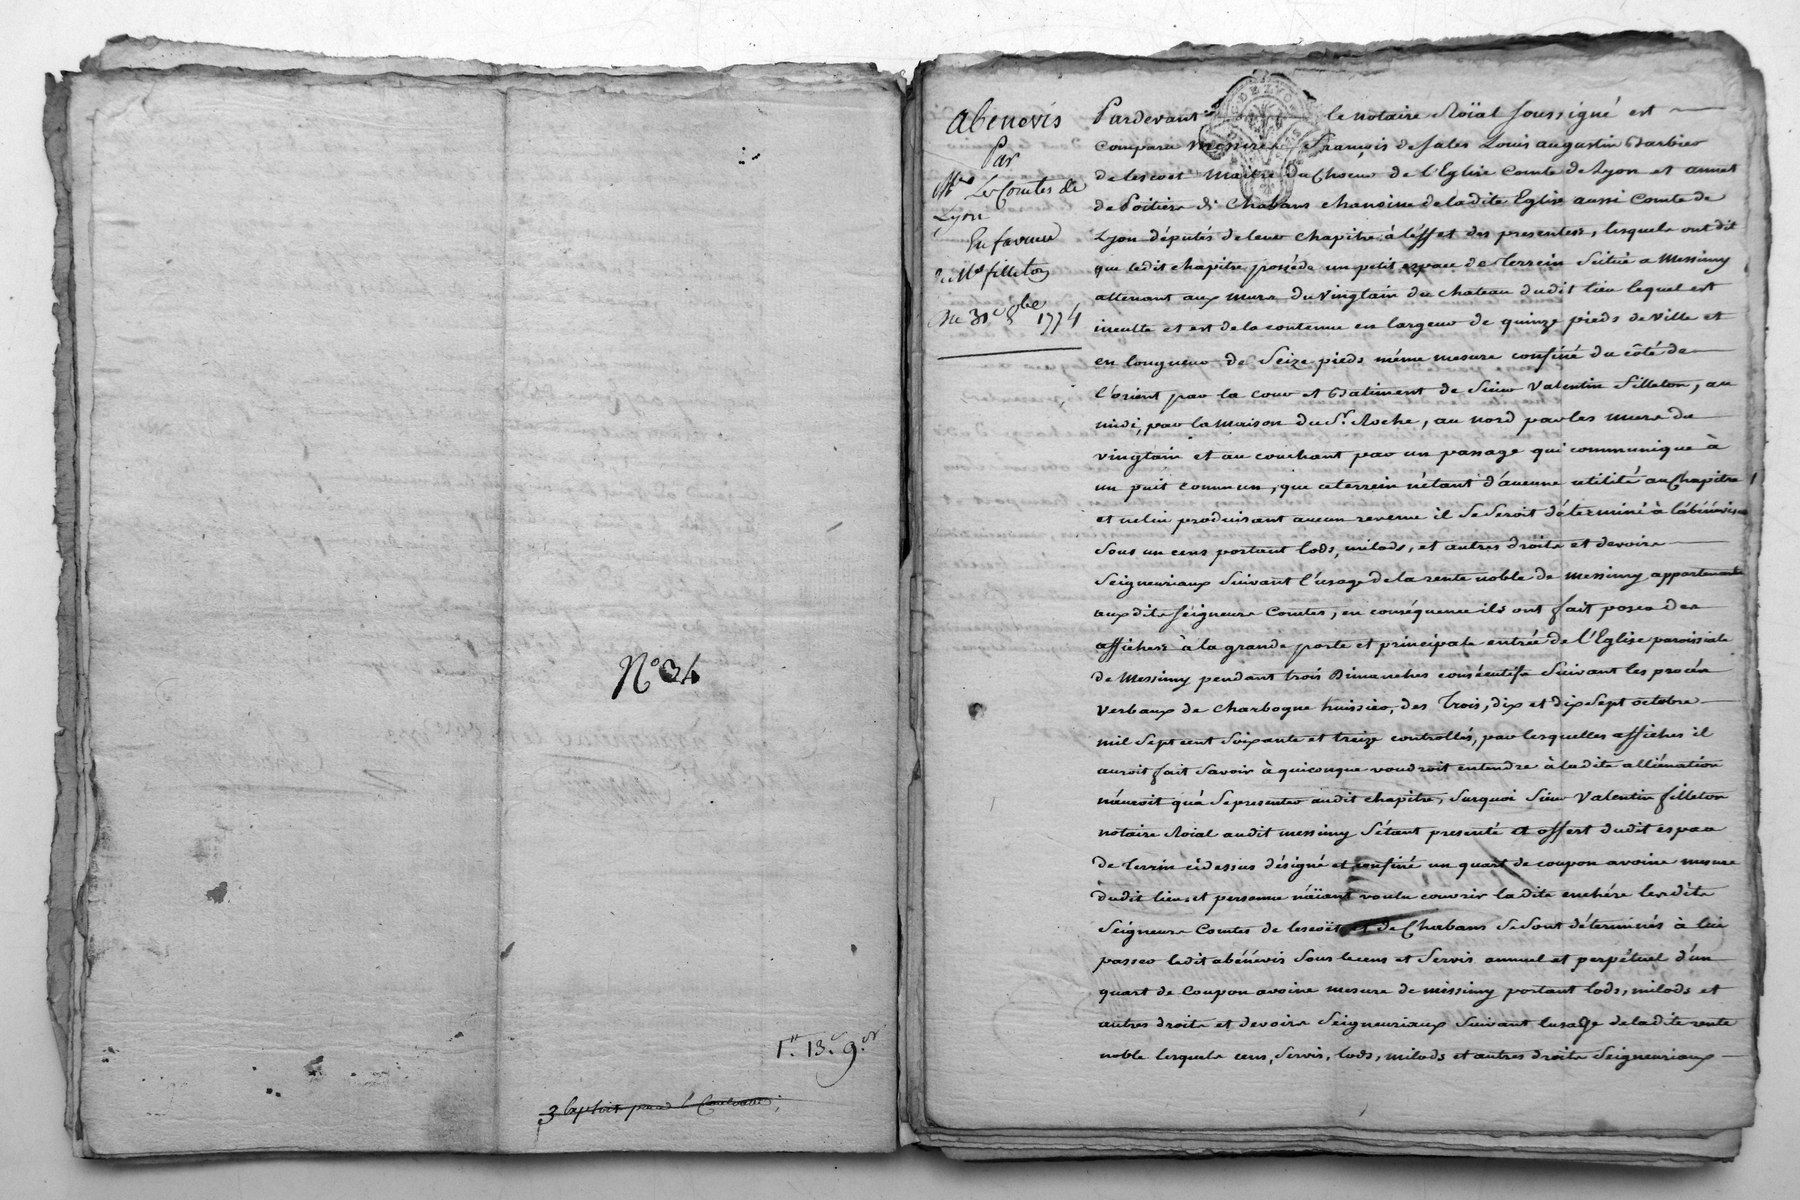 N.° 34
1.tt 13.s 9.dr
3
Abenevis
Par
Mrs Les Comtes de
Lyon
En faveur
de Me filleton
Du 31e 8bre 1774
Pardevant le notaire Roïal soussigné est
comparu messire François de sales Louis augustin Barbier
de lescoet maitre du Choeur de l'Eglise Comte de Lyon et annet
de Poitiers de Chabans chanoine de ladite Eglise aussi Comte de
Lyon députés de leur chapitre à l'éffet des presentes, lesquels ont dit
que ledit chapitre posséde un petit espace de terrein Scitué a Messimy
attenant aux murs du vingtain du chateau dudit lieu lequel est
inculte et est de la contenue en largeur de quinze pieds de ville et
en longueur de Seize pieds même mesure confiné du côté de
l'orient par la cour et Batiment de Sieur Valentin Filleton, au
midi, par la maison du Sr. Roche, au nord par les murs du
vingtain et au couchant par un passage qui communique à
un puit commun, que ce terrein n'étant d'aucune utilité au Chapitre
et ne lui produisant aucun revenu il Se Seroit déterminé à l'abénéviser
Sous un cens portant lods, milods, et autres droits et devoirs
Seigneuriaux Suivant l'usage de la rente noble de messimy appartenante
auxdits seigneurs Comtes, en conséquence ils ont fait poser des
affiches à la grande porte et principale entrée de l'Eglise paroissiale
de Messimy pendant trois Dimanches consécutifs Suivant les procés
verbaux de Charbogne huissier, des Trois, dix et dix Sept octobre
mil Sept cent Soixante et treize controllés, par lesquelles affiches il
auroit fait Savoir à quiconque voudroit entendre à ladite alliénation
n'auroit qu'à Se presenter audit chapitre, Surquoi Sieur Valentin filleton
notaire Roial audit messimy S'étant presenté et offert dudit espace
de terrin cidessus désigné et confiné un quart de coupon avoine mesure
dudit lieu et personne n'aïant voulu couvrir ladite enchére lesdits
Seigneurs Comtes de lescoët et de Chabans Se sont déterminés à lui
passer ledit abénévis Sous le cens et Servis annuel et perpétuel d'un
quart de Coupon avoine mesure de messimy portant lods, milods et
autres droits et devoirs Seigneuriaux Suivant l'usage de ladite rente
noble lesquels cens, Servis, lods, milods et autres droits Seigneuriaux